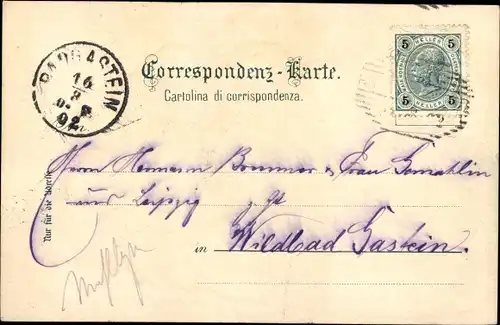 BADGASTEIN
16
8
02
Correspondenz-Karte.
Cartolina di corrispondenza.
5 5
HELLER
5 HELLER 5
Nur für die Adresse
Herrn Hermann Brummer & Frau Gemahlin
aus Leipzig z. Zt
in Wildbad Gastein.